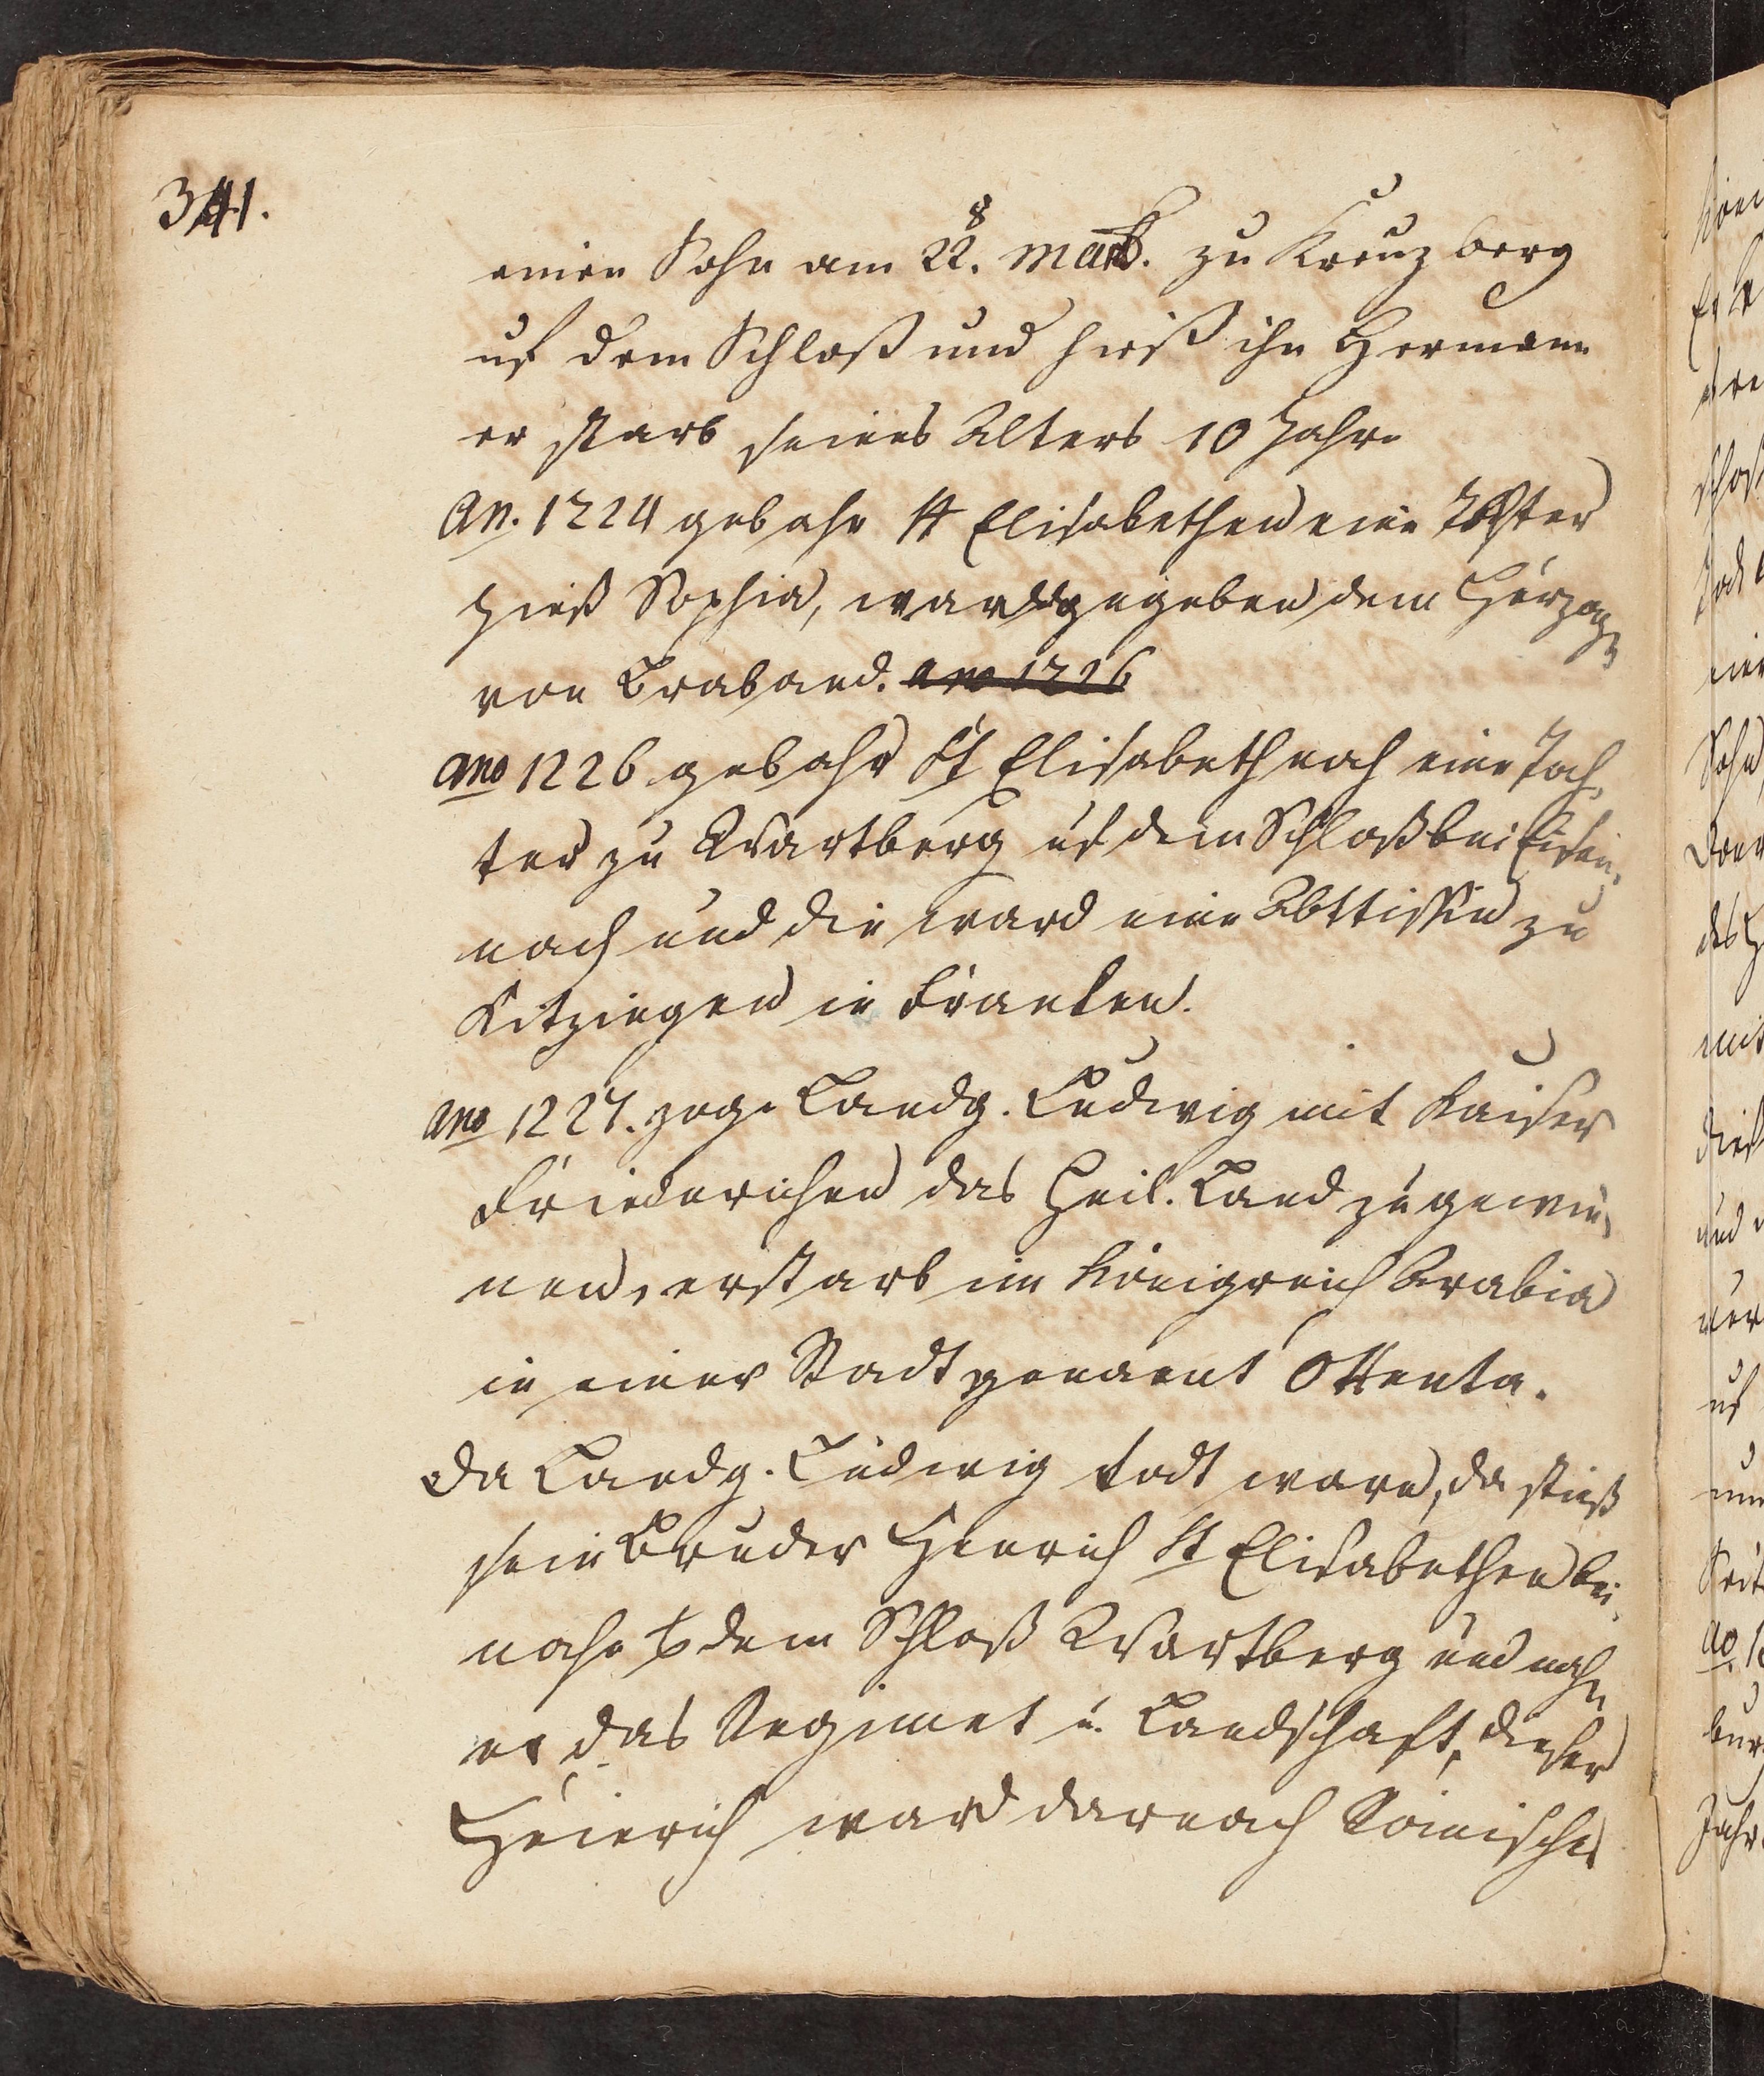 341.
einen Sohn am 22. Mart. zu Kreuzberg
8
uf dem Schloß und hieß ihn Hermann
er starb seines Alters 10 Jahre
An. 1224 gebahr St Elisabethen eine Tochter
hieß Sophia, ward gegeben dem Herzogen
von Braband. ano 1226
ano 1226 gebahr St Elisabeth noch eine Toch,
ter zu Wartberg uf dem Schloß bei Eisen,
nach und die ward eine Abttissin zu
Kitzingen in Franken.
ano 1227. zoge Landg. Ludwig mit Kaiser
Friederichen das Heil. Land zu gewin,
nen, er starb im Königreich Arabia
in einer Stadt genennt Ottenta.
Da Landg. Ludwig todt ware, da stieß
sein Bruder Henrich St Elisabethen bei,
nahe dem Schloß Wartberg und nahm
er das Regiment u. Landschaft, dieser
Heinrich ward darnach Römischer